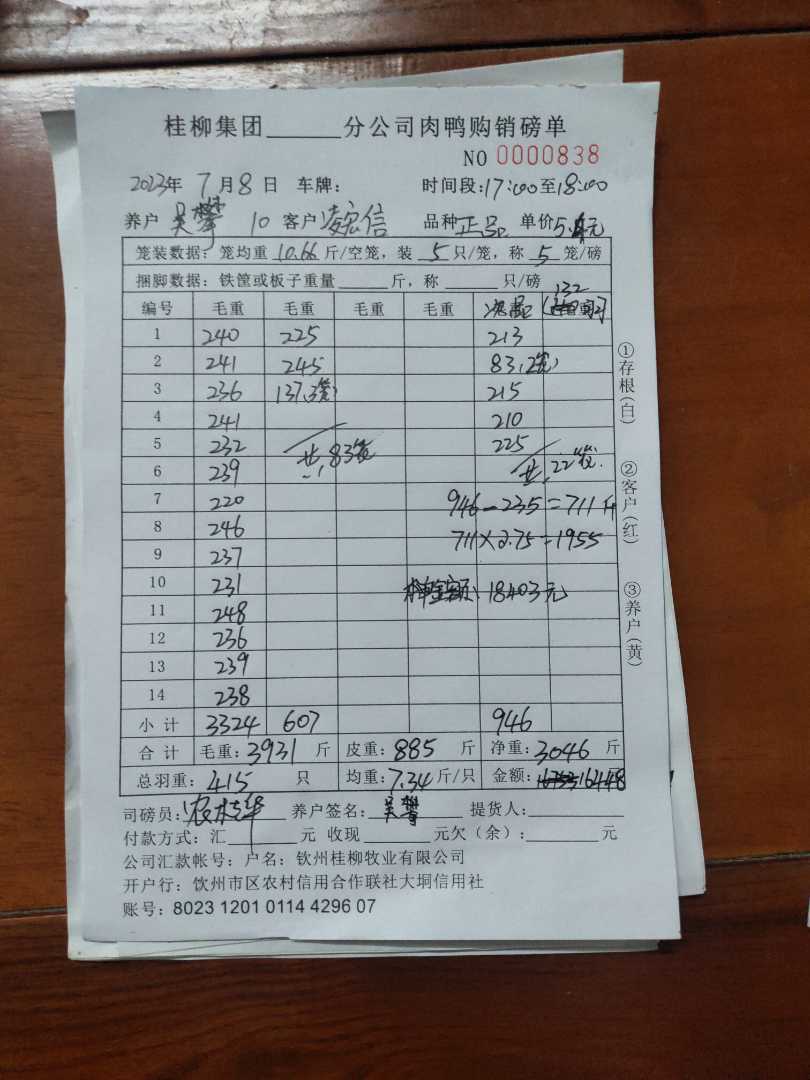 桂柳集团______分公司肉鸭购销磅单
NO 0000838
2023年 7月8日 车牌: 时间段:17:00至18:00
养户 吴攀 10 客户 凌宏信 品种 正品 单价 5.4元
笼装数据: 笼均重 10.66 斤/空笼, 装 5 只/笼, 称 5 笼/磅
捆脚数据: 铁筐或板子重量______斤, 称______只/磅
132
编号 毛重 毛重 毛重 毛重
1 240 225 213
2 241 245 83(2笼)
3 236 137(3笼) 215
4 241 210
5 232 共83笼 225
6 239 共22笼
7 220 946-235=711斤
8 246 711×2.75=1955
9 237
10 231 18403元
11 248
12 236
13 239
14 238
小计 3324 607 946
合计 毛重: 3931 斤 皮重: 885 斤 净重: 3046 斤
总羽重: 415 只 均重: 7.34 斤/只 金额: 16448
司磅员: 养户签名: 吴攀 提货人:
付款方式: 汇______元 收现______元欠(余):______元
公司汇款帐号: 户名: 钦州桂柳牧业有限公司
开户行: 钦州市区农村信用合作联社大垌信用社
账号: 8023 1201 0114 4296 07
①存根(白)
②客户(红)
③养户(黄)